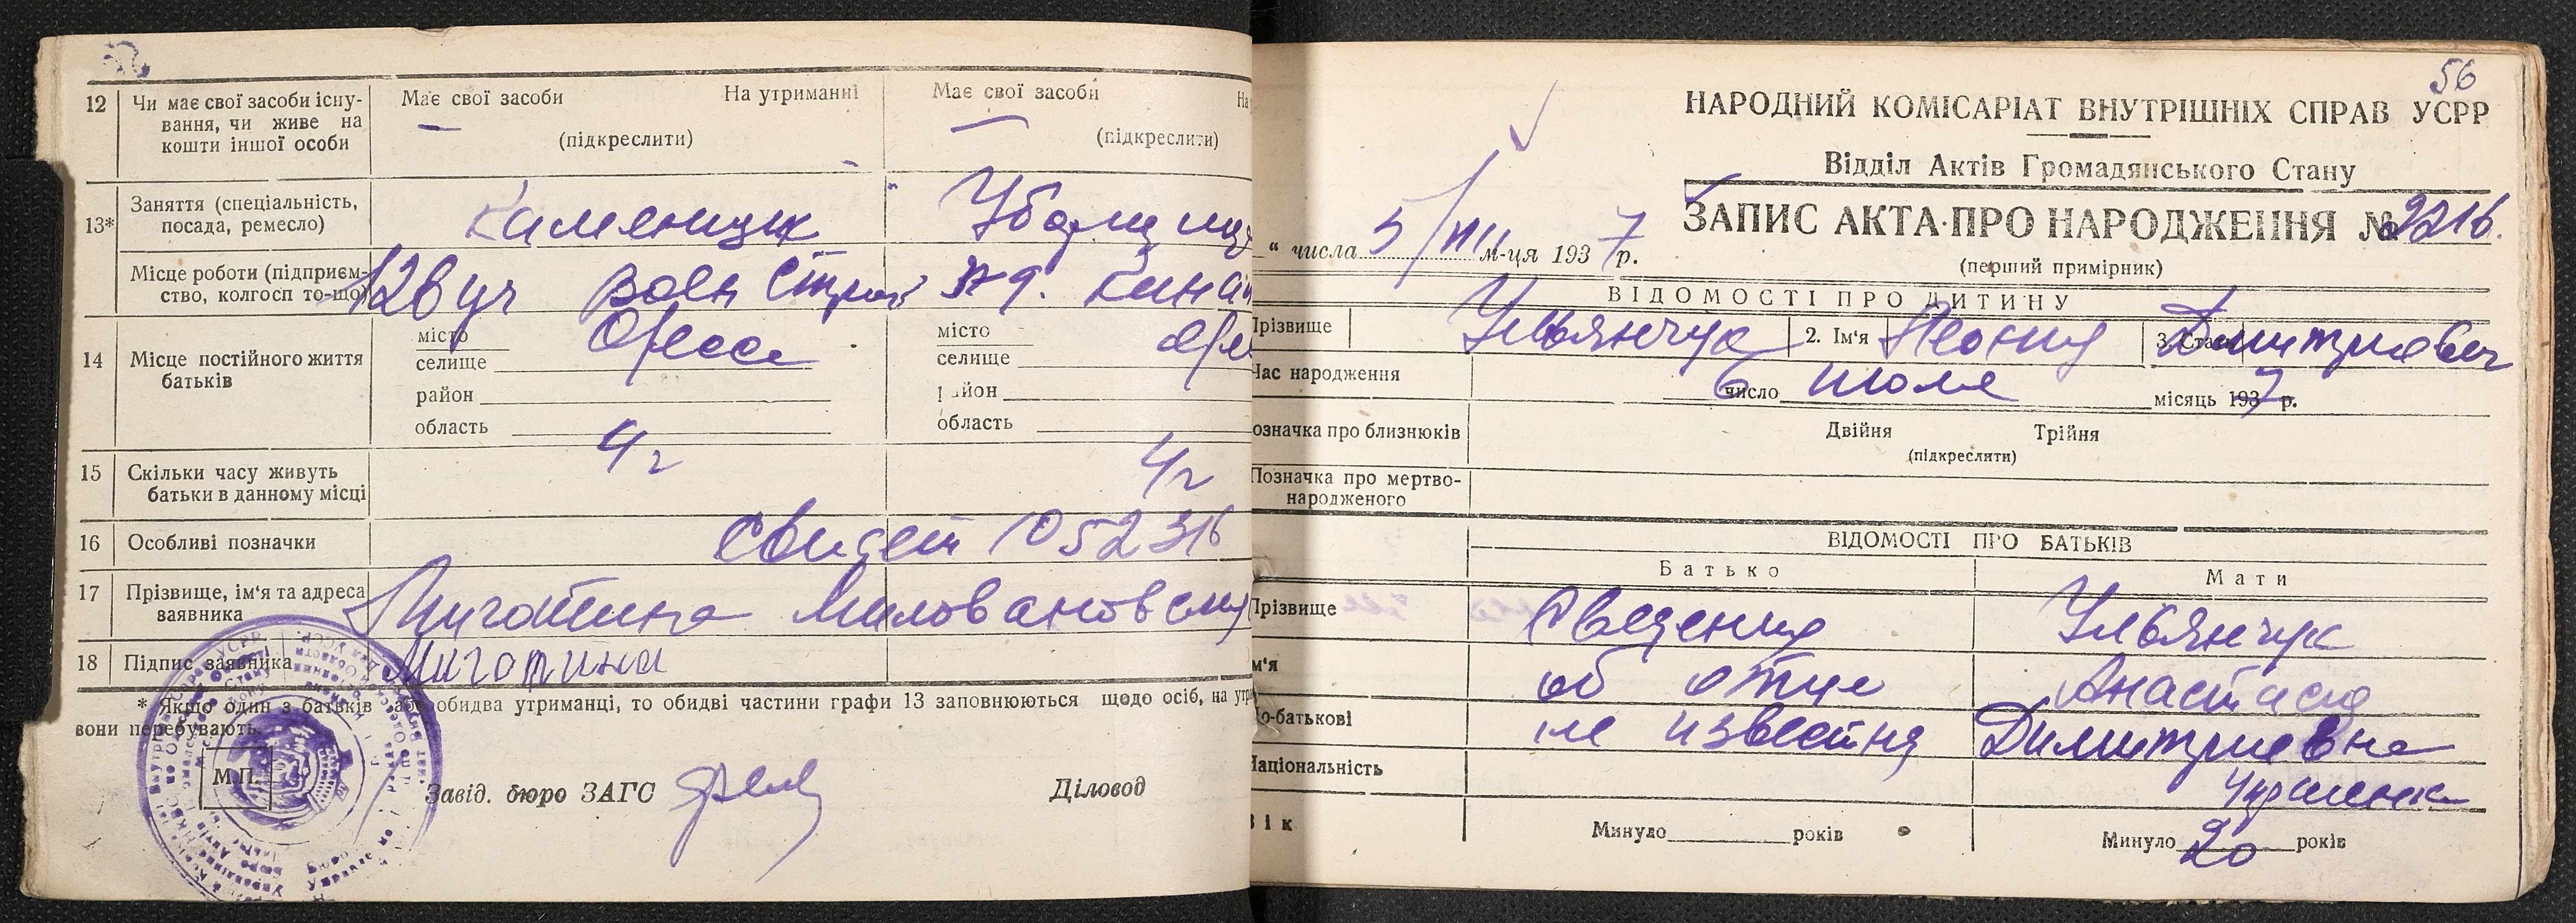 12 Чи має свої засоби існу- Має свої засоби На утриманні Має свої засоби На
вання, чи живе на
кошти іншої особи (підкреслити) (підкреслити)
13* Заняття (спеціальність, Каменщик Уборщица
посада, ремесло)
Місце роботи (підприєм- 126 уч Воен
ство, колгосп то-що)
14 Місце постійного життя місто Одесса місто
батьків селище селище
район район
область область
15 Скільки часу живуть 4 г 4 г
батьки в данному місці
16 Особливі позначки Свидет 1052316
17 Прізвище, ім'я та адреса Миготина
заявника
18 Підпис заявника Миготина
* Якщо один з батьків або обидва утриманці, то обидві частини графи 13 заповнюються щодо осіб, на
вони перебувають.
М.П.
Завід. бюро ЗАГС Діловод
56
НАРОДНИЙ КОМІСАРІАТ ВНУТРІШНІХ СПРАВ УСРР
Відділ Актів Громадянського Стану
ЗАПИС АКТА ПРО НАРОДЖЕННЯ № 2216.
" числа 5/VIII м-ця 1937 р.
(перший примірник)
ВІДОМОСТІ ПРО ДИТИНУ
Прізвище Ульянчук 2. Ім'я Леонид 3. Дмитриевич
Час народження 6 число июля місяць 1937 р.
означка про близнюків Двійня Трійня
(підкреслити)
Позначка про мертво-
народженого
ВІДОМОСТІ ПРО БАТЬКІВ
Батько Мати
Прізвище Сведения Ульянчук
м'я об отце Анастасия
о-батькові не известны Димитриевна
Національність Украинка
Вік Минуло років Минуло 20 років